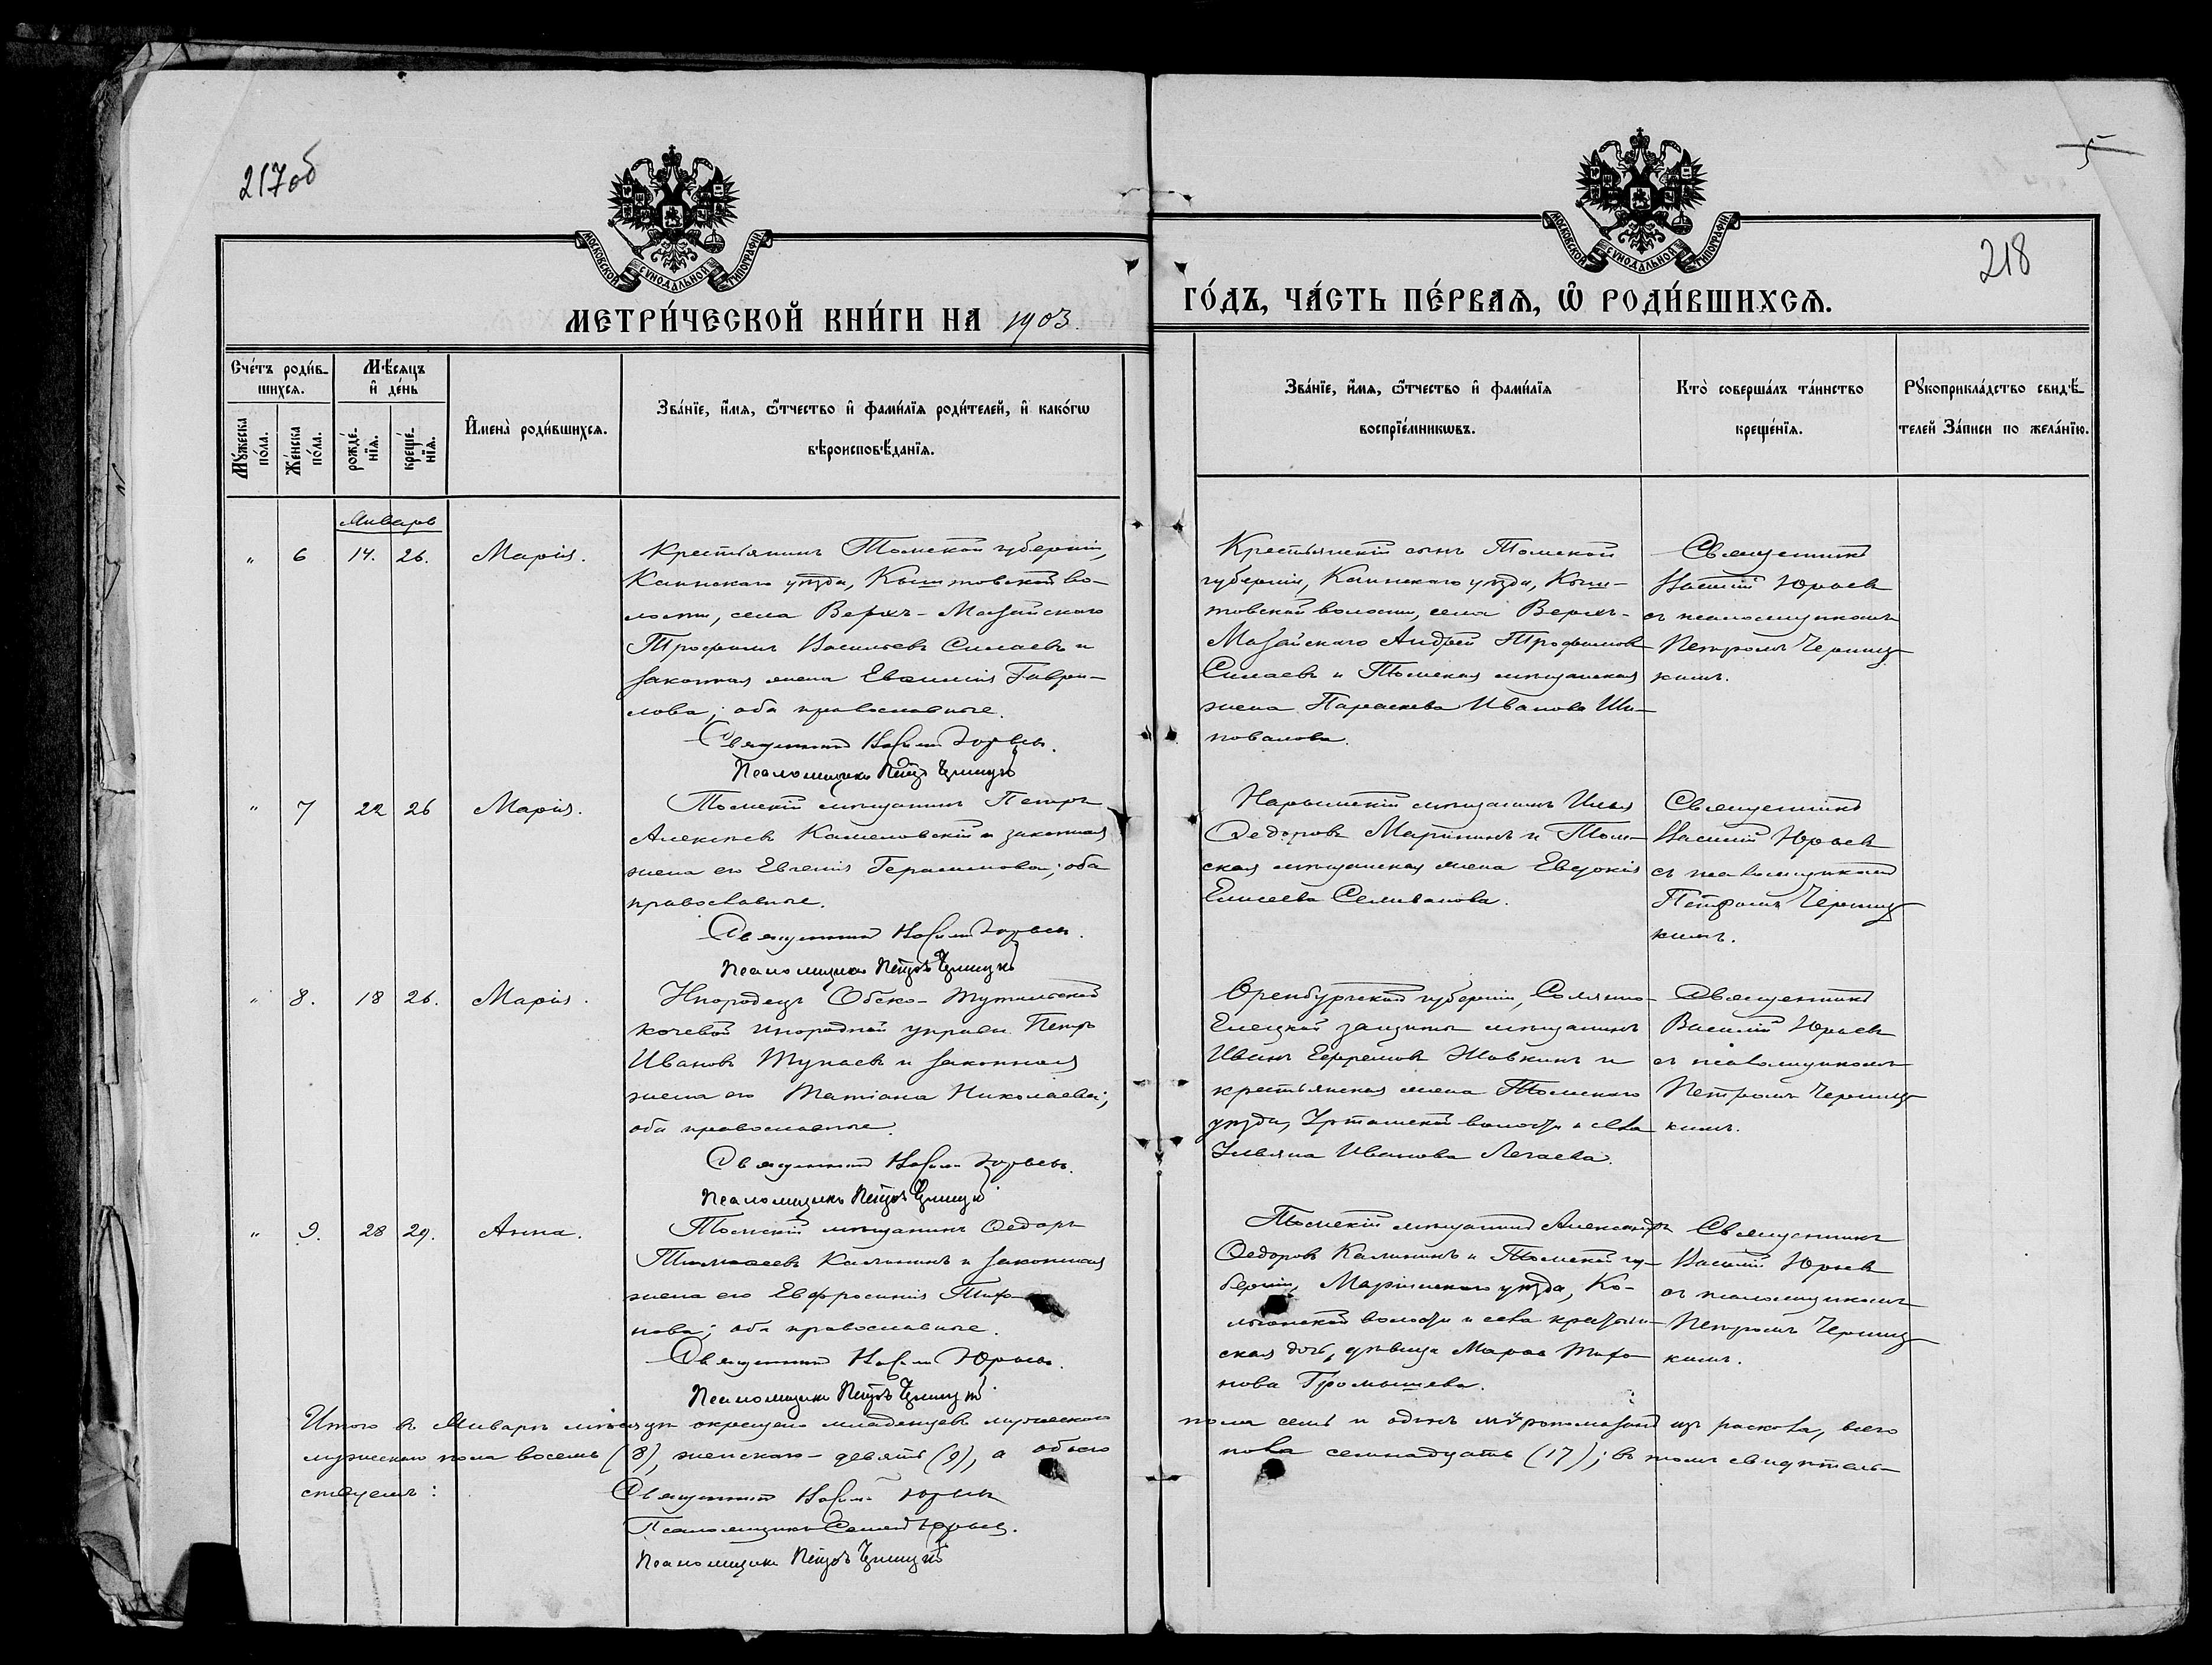 217об
5
218
МОСКОВСКОЙ СѴНОДАЛЬНОЙ ТИПОГРАФІИ
МОСКОВСКОЙ СѴНОДАЛЬНОЙ ТИПОГРАФІИ
МЕТРИ́ЧЕСКОЙ КНИ́ГИ НА 1903. ГО́ДЪ, ЧА́СТЬ ПЕ́РВАѦ, Ѽ РОДИ́ВШИХСѦ.
Сче́тъ роди́в-
шихся.
Мꙋ́жеска по́ла.
Же́нска по́ла.
Мѣ́сяцъ
и҆ де́нь
рожде́-
нїя.
креще́-
нїя.
И҆мена̀ роди́вшихся.
Зва́нїе, и҆́мя, ѻ҆́тчество и҆ фами́лїя роди́телей, и҆ како́гѡ
вѣроисповѣ́данїя.
Зва́нїе, и҆́мя, ѻ҆́тчество и҆ фами́лїя
воспрїе́мникѡвъ.
Кто̀ соверша́лъ та́инство
креще́нїя.
Рꙋкоприкла́дство свидѣ́-
телей За́писи по жела́нїю.
Январь
" 6 14. 26. Марія.
Крестьянинъ Томской губерніи,
Каинскаго уѣзда, Кыштовской во-
лости, села Верхъ-Мазайскаго
Трофимъ Васильевъ Силаевъ и
законная жена Евфимія Гаври-
лова; оба православные.
Священникъ Василій Юрьевъ.
Псаломщикъ Петръ
Крестьянскій сынъ Томской
губерніи, Каинскаго уѣзда, Кыш-
товской волости, села Верхъ-
Мазайскаго Андрей Трофимовъ
Силаевъ и Томская мѣщанская
жена Параскева Иванова Ши-
повалова.
Священникъ
Василій Юрьевъ
съ псаломщикомъ
Петромъ
кимъ.
" 7 22 26 Марія.
Томскій мѣщанинъ Петръ
Алексѣевъ и законная
жена его Евгенія Герасимова; оба
православные.
Священникъ Василій Юрьевъ.
Псаломщикъ Петръ
Нарымскій мѣщанинъ Илья
Ѳедоровъ и Том-
ская мѣщанская жена Евдокія
Елисеева Селиванова.
Священникъ
Василій Юрьевъ
съ псаломщикомъ
Петромъ
кимъ.
" 8. 18 26. Марія.
Инородецъ Обско-Тутальской
кочевой инородной управы Петръ
Ивановъ Тупаевъ и законная
жена его Татіана Николаева;
оба православные.
Священникъ Василій Юрьевъ.
Псаломщикъ Петръ
Оренбургской губерніи,
Елецкой защиты мѣщанинъ
Иванъ Ефремовъ и
крестьянская жена Томскаго
уѣзда, волости и села
Ульяна Иванова
Священникъ
Василій Юрьевъ
съ псаломщикомъ
Петромъ
кимъ.
" 9. 28 29. Анна.
Томскій мѣщанинъ Ѳедоръ
Тимоѳеевъ Калининъ и законная
жена его Евфросинія
нова; оба православные.
Священникъ Василій Юрьевъ.
Псаломщикъ Петръ
Томскій мѣщанинъ Александръ
Ѳедоровъ Калининъ и Томской гу-
берніи, Маріинскаго уѣзда,
волости и села крестьян-
ская дочь, дѣвица
нова Громышева.
Священникъ
Василій Юрьевъ
съ псаломщикомъ
Петромъ
кимъ.
Итого въ Январѣ мѣсяцѣ окрещено младенцевъ мужескаго пола семь и одинъ мѵропомазанъ изъ раскола, всего
мужескаго пола восемь (8), женскаго – девять (9), а обоего пола семнадцать (17); въ томъ свидѣтель-
ствуемъ:
Священникъ Василій Юрьевъ
Псаломщикъ Юрьевъ.
Псаломщикъ Петръ